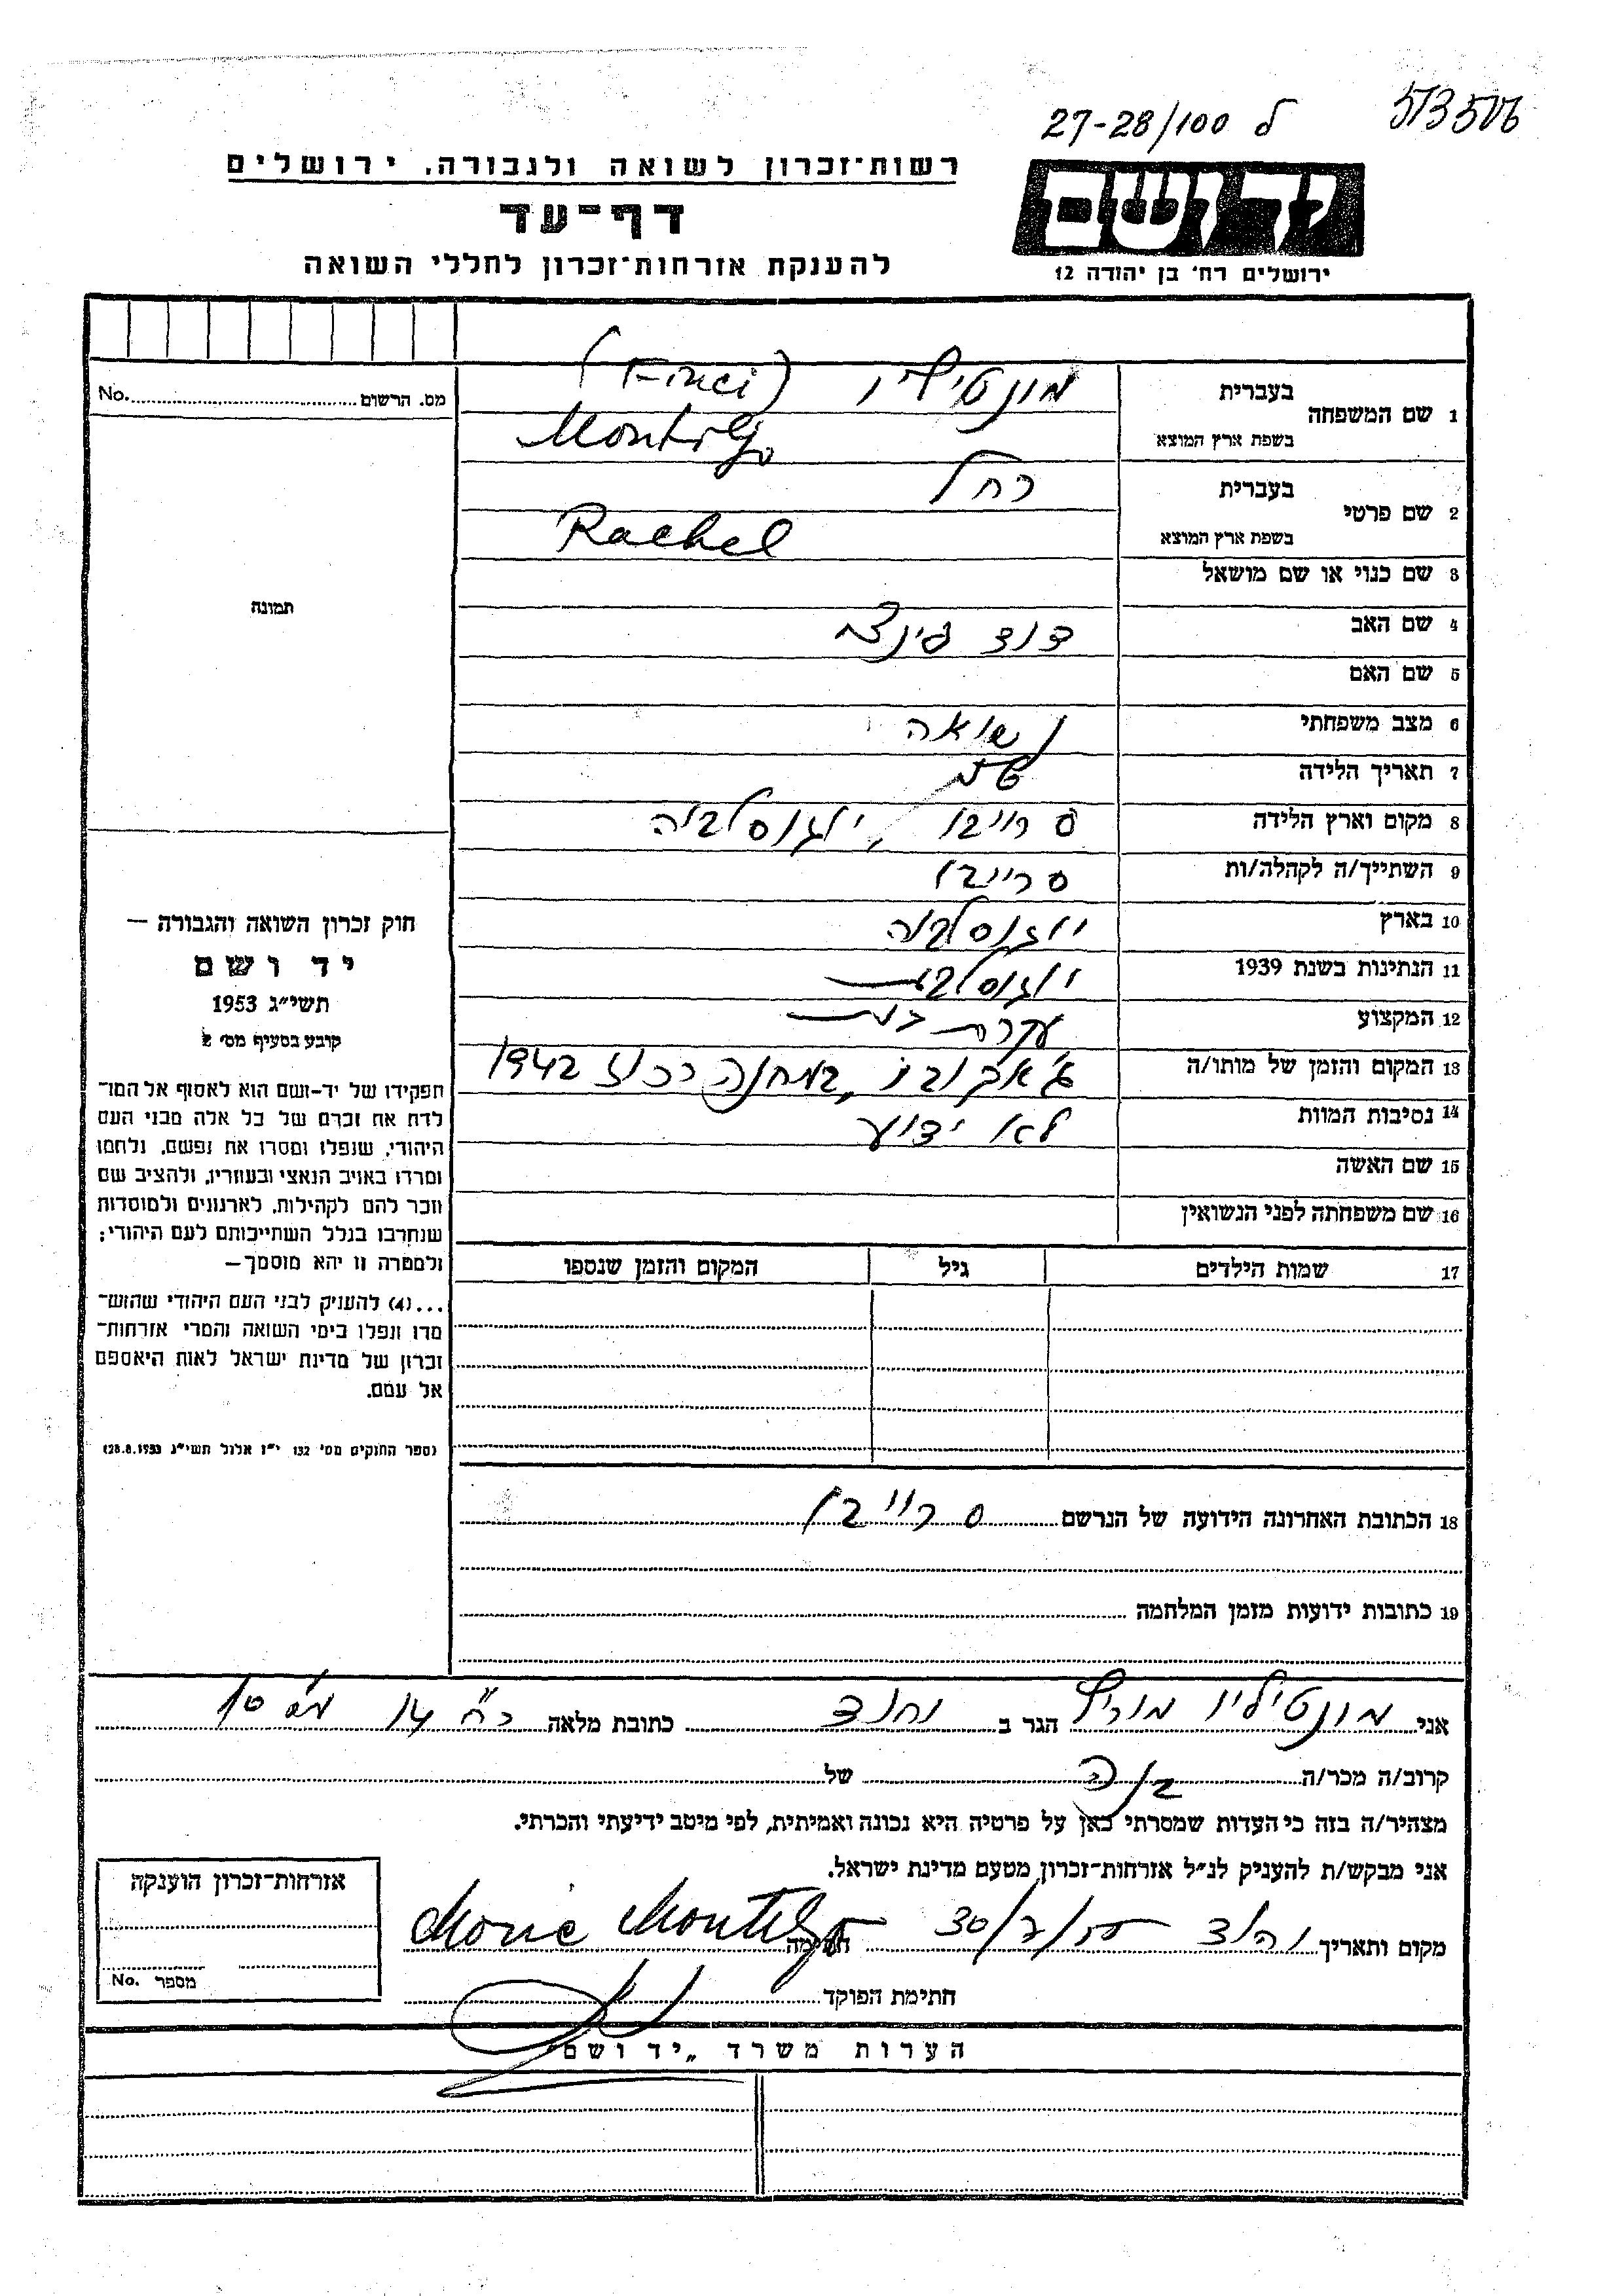 573506
27-28/100 ל
יד ושם
ירושלים רח' בן יהודה 12
רשות־זכרון לשואה ולגבורה, ירושלים
דף־עד
להענקת אזרחות־זכרון לחללי השואה
מס. הרשום No.
תמונה
1 שם המשפחה בעברית מונטיליו (Finci)
בשפת ארץ המוצא Montiljo
2 שם פרטי בעברית רחל
בשפת ארץ המוצא Rachel
3 שם כנוי או שם מושאל
4 שם האב דוד פינצי
5 שם האם
6 מצב משפחתי נשואה
7 תאריך הלידה
8 מקום וארץ הלידה סרייבו, יוגוסלביה
9 השתייך/ה לקהלה/ות סרייבו
10 בארץ יוגוסלביה
11 הנתינות בשנת 1939 יוגוסלבית
12 המקצוע עקרת בית
13 המקום והזמן של מותו/ה ג'אקובו, במחנה רכוז 1942
14 נסיבות המוות לא ידוע
15 שם האשה
16 שם משפחתה לפני הנשואין
17 שמות הילדים גיל המקום והזמן שנספו
חוק זכרון השואה והגבורה —
יד ושם
תשי"ג 1953
קובע בסעיף מס' 2
תפקידו של יד-ושם הוא לאסוף אל המו־
לדת את זכרם של כל אלה מבני העם
היהודי, שנפלו ומסרו את נפשם, נלחמו
ומרדו באויב הנאצי ובעוזריו, ולהציב שם
וזכר להם לקהילות, לארגונים ולמוסדות
שנחרבו בגלל השתייכותם לעם היהודי;
ולמטרה זו יהא מוסמך—
...(4) להעניק לבני העם היהודי שהוש־
מדו ונפלו בימי השואה והמרי אזרחות־
זכרון של מדינת ישראל לאות היאספם
אל עמם.
(ספר החוקים מס' 132 י"ז אלול תשי"ג 28.8.1953)
18 הכתובת האחרונה הידועה של הנרשם סרייבו
19 כתובות ידועות מזמן המלחמה
אני מונטיליו מוריץ הגר ב כתובת מלאה רח' 14 מס' 10
קרוב/ה מכר/ה בנה של
מצהיר/ה בזה כי העדות שמסרתי כאן על פרטיה היא נכונה ואמיתית, לפי מיטב ידיעתי והכרתי.
אני מבקש/ת להעניק לנ"ל אזרחות־זכרון מטעם מדינת ישראל.
מקום ותאריך 30/7/55 חתימה Moric Montiljo
חתימת הפוקד
אזרחות־זכרון הוענקה
מספר No.
הערות משרד „יד ושם"